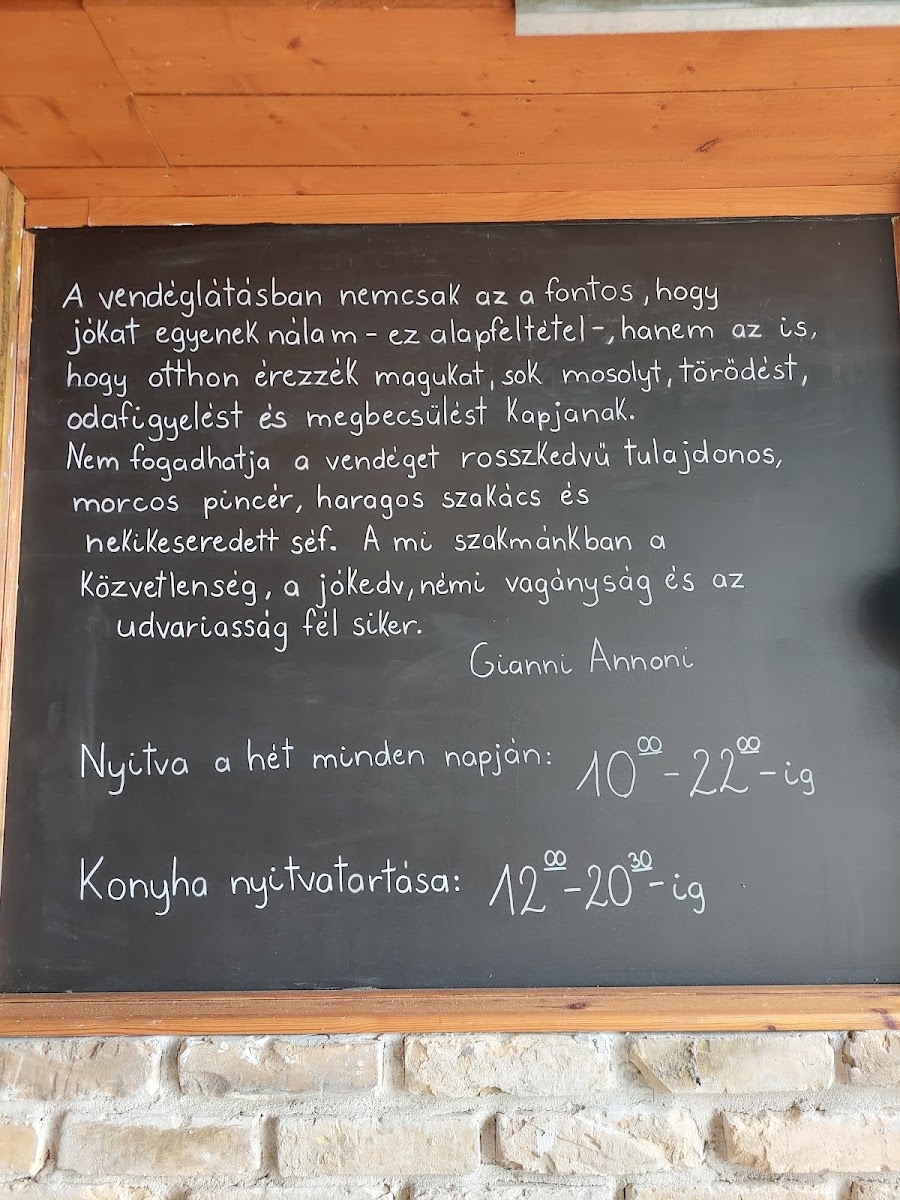 A vendéglátásban nemcsak az a fontos, hogy
jókat egyenek nálam - ez alapfeltétel -, hanem az is,
hogy otthon érezzék magukat, sok mosolyt, törődést,
odafigyelést és megbecsülést kapjanak.
Nem fogadhatja a vendéget rosszkedvű tulajdonos,
morcos pincér, haragos szakács és
nekikeseredett séf. A mi szakmánkban a
közvetlenség, a jókedv, némi vagányság és az
udvariasság fél siker.
Gianni Annoni
Nyitva a hét minden napján: 10⁰⁰-22⁰⁰-ig
Konyha nyitvatartása: 12⁰⁰-20³⁰-ig